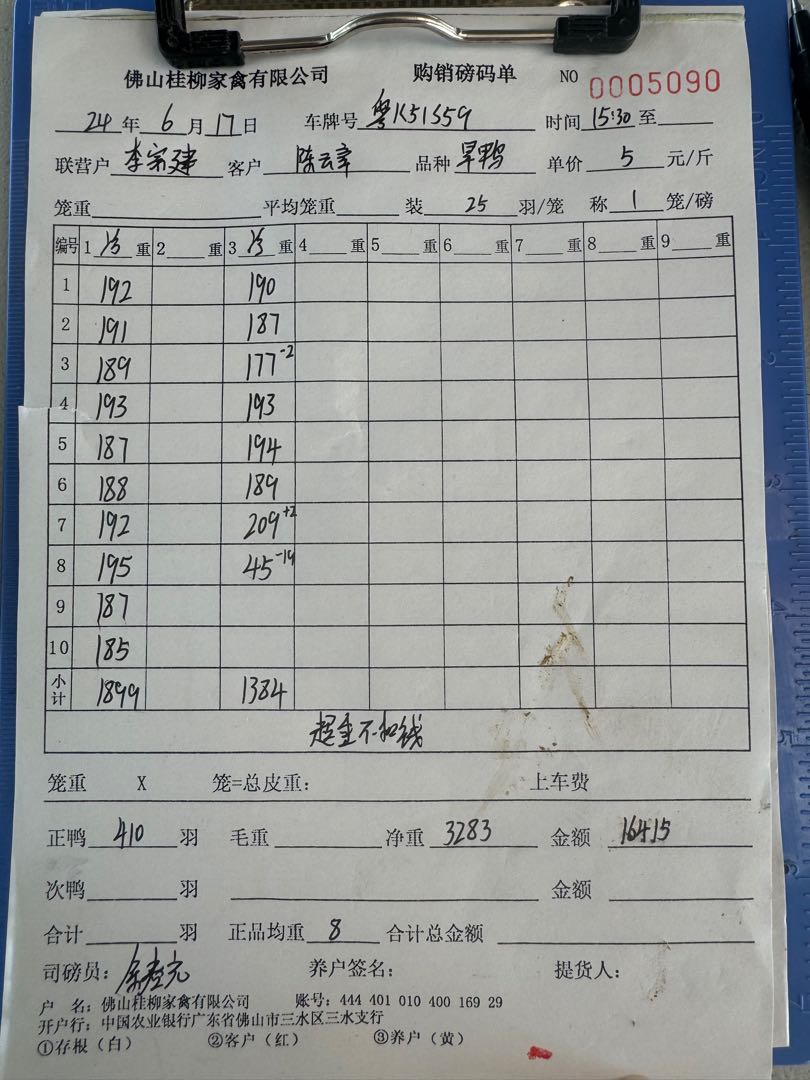 佛山桂柳家禽有限公司 购销磅码单 NO 0005090
24 年 6 月 17 日 车牌号 粤K51S59 时间 15:30 至
联营户 李宗建 客户 陈云章 品种 旱鸭 单价 5 元/斤
笼重 平均笼重 装 25 羽/笼 称 1 笼/磅
编号 1 重 2 重 3 重 4 重 5 重 6 重 7 重 8 重 9 重
1 192 190
2 191 187
3 189 177 -2
4 193 193
5 187 194
6 188 189
7 192 209 +2
8 195 45 -19
9 187
10 185
小计 1899 1384
超重不扣钱
笼重 X 笼=总皮重: 上车费
正鸭 410 羽 毛重 净重 3283 金额 16415
次鸭 羽 金额
合计 羽 正品均重 8 合计总金额
司磅员: 养户签名: 提货人:
户 名: 佛山桂柳家禽有限公司 账号: 444 401 010 400 169 29
开户行: 中国农业银行广东省佛山市三水区三水支行
①存根（白） ②客户（红） ③养户（黄）